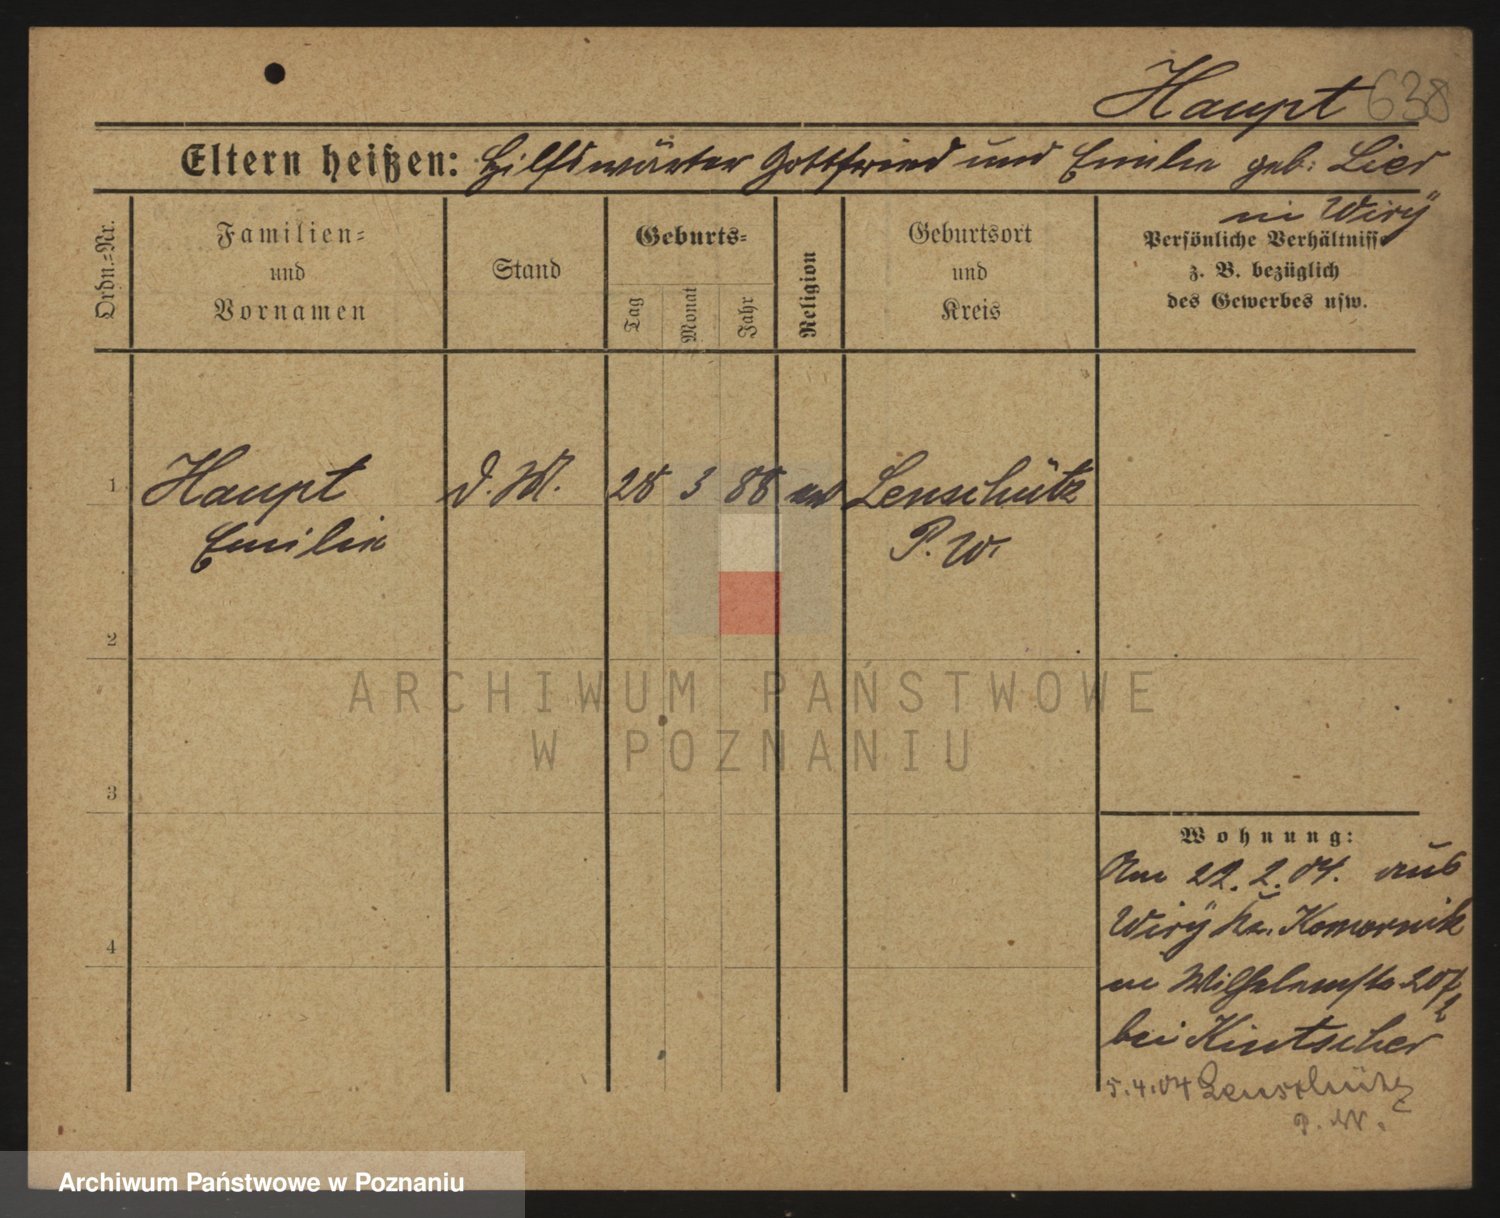 Haupt 638
Eltern heißen: Hilfswärter Gottfried und Emilie geb. Lier
in Wiry
Ordn.=Nr.
Familien=
und
Vornamen
Stand
Geburts=
Tag
Monat
Jahr
Religion
Geburtsort
und
Kreis
Persönliche Verhältnisse
z. B. bezüglich
des Gewerbes usw.
1 Haupt D.M. 28 3 88 ev Lenschütz
Emilie P.W.
2
3
4
Wohnung:
Am 22.2.04. aus
Wiry Kr. Komornik
in Wilhelmstr. 20
bei Kintscher
5.4.04 Lenschütz
P. W.
ARCHIWUM PAŃSTWOWE
W POZNANIU
Archiwum Państwowe w Poznaniu